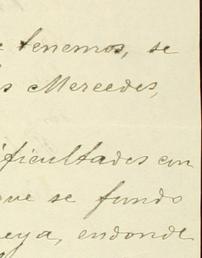 tenemos, se
s Mercedes,
ificultades con
que se fundo
eya, endonde